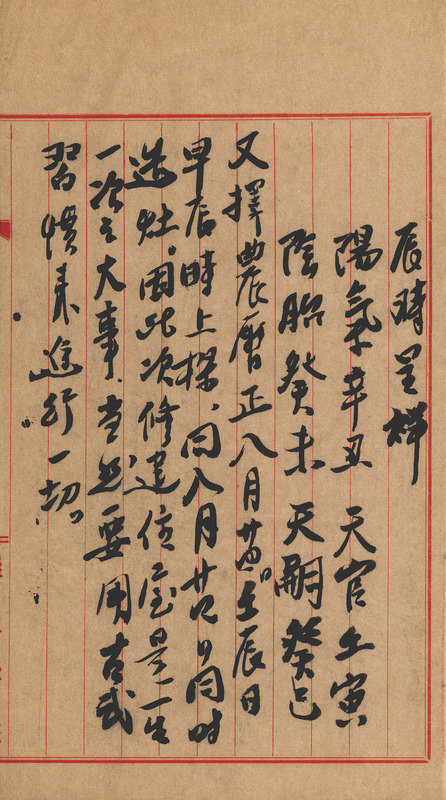 辰時呈祥
陽氣辛丑　天官壬寅
陰胎癸未　天嗣癸巳
又擇農曆正八月廿四日壬辰日
早辰時上樑、同八月廿八日同时
进灶。因此次修建住宅是一生
一次之大事、当然要用古式
習慣来進行一切。